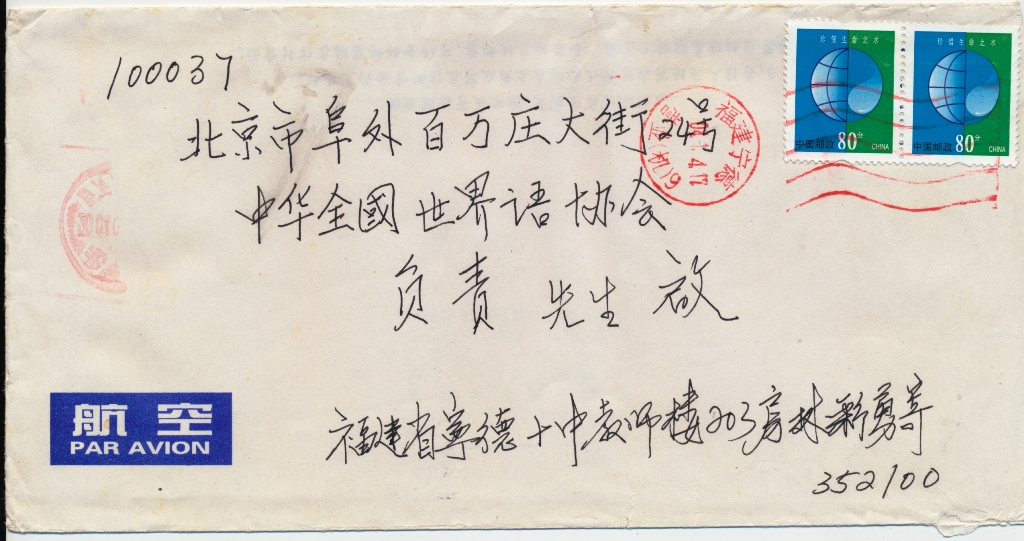 100037
北京市阜外百万庄大街24号
中华全國世界语协会
负责 先生 啟
福建省寧德十中教师楼203房林彩勇寄
352100
航空
PAR AVION
珍惜生命之水
中国邮政 80分 CHINA
珍惜生命之水
中国邮政 80分 CHINA
福建宁德